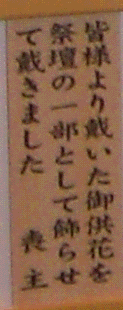 皆様より戴いた御供花を
祭壇の一部として飾らせ
て戴きました　喪主